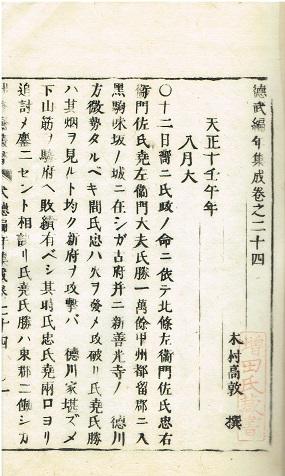 德武編年集成卷之二十四
木村高敦 撰
天正十壬午年
八月大
〇十二日嚮ニ氏政ノ命ニ依テ北條左衞門佐氏忠右
衞門佐氏堯左衞門大夫氏勝一萬餘甲州都留郡ニ入
黑駒味坂ノ城ニ在シガ古府并ニ新善光寺ノ 德川
方微勢タルベキ間氏忠ハ火ヲ發メ攻破リ氏堯氏勝
ハ其烟ヲ見ルト均ク新府ヲ攻擊バ 德川家堪ズメ
下山筋ノ駿府ヘ敗績有ベシ其時氏忠氏堯兩口ヨリ
追討メ鏖ニセント相議リ氏堯氏勝ハ東郡ニ働シカ
增田氏